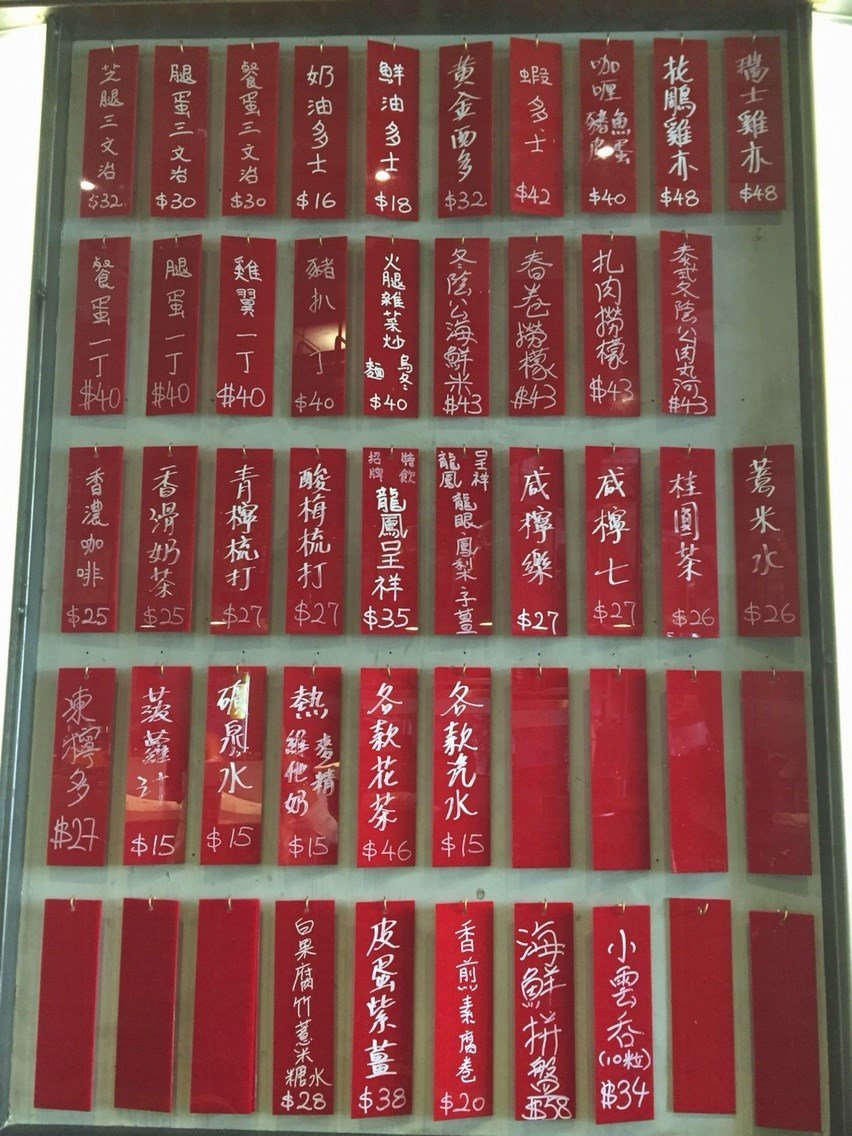 芝腿三文治 $32
腿蛋三文治 $30
餐蛋三文治 $30
奶油多士 $16
鮮油多士 $18
黄金西多 $32
蝦多士 $42
咖喱魚蛋豬皮 $40
花鵰雞亦 $48
瑞士雞亦 $48
餐蛋一丁 $40
腿蛋一丁 $40
雞翼一丁 $40
豬扒一丁 $40
火腿雜菜炒烏冬麵 $40
冬陰公海鮮米 $43
春卷撈檬 $43
扎肉撈檬 $43
泰式冬陰公肉丸河 $43
香濃咖啡 $25
香滑奶茶 $25
青檸梳打 $27
酸梅梳打 $27
招牌特飲龍鳳呈祥 $35
龍鳳呈祥 龍眼鳳梨子薑
咸檸樂 $27
咸檸七 $27
桂圓茶 $26
薏米水 $26
凍檸多 $27
菠蘿汁 $15
礦泉水 $15
熱維他奶麥精 $15
各款花茶 $46
各款汽水 $15
白果腐竹薏米糖水 $28
皮蛋紫薑 $38
香煎素腐卷 $20
海鮮拼盤 $58
小雲吞(10粒) $34